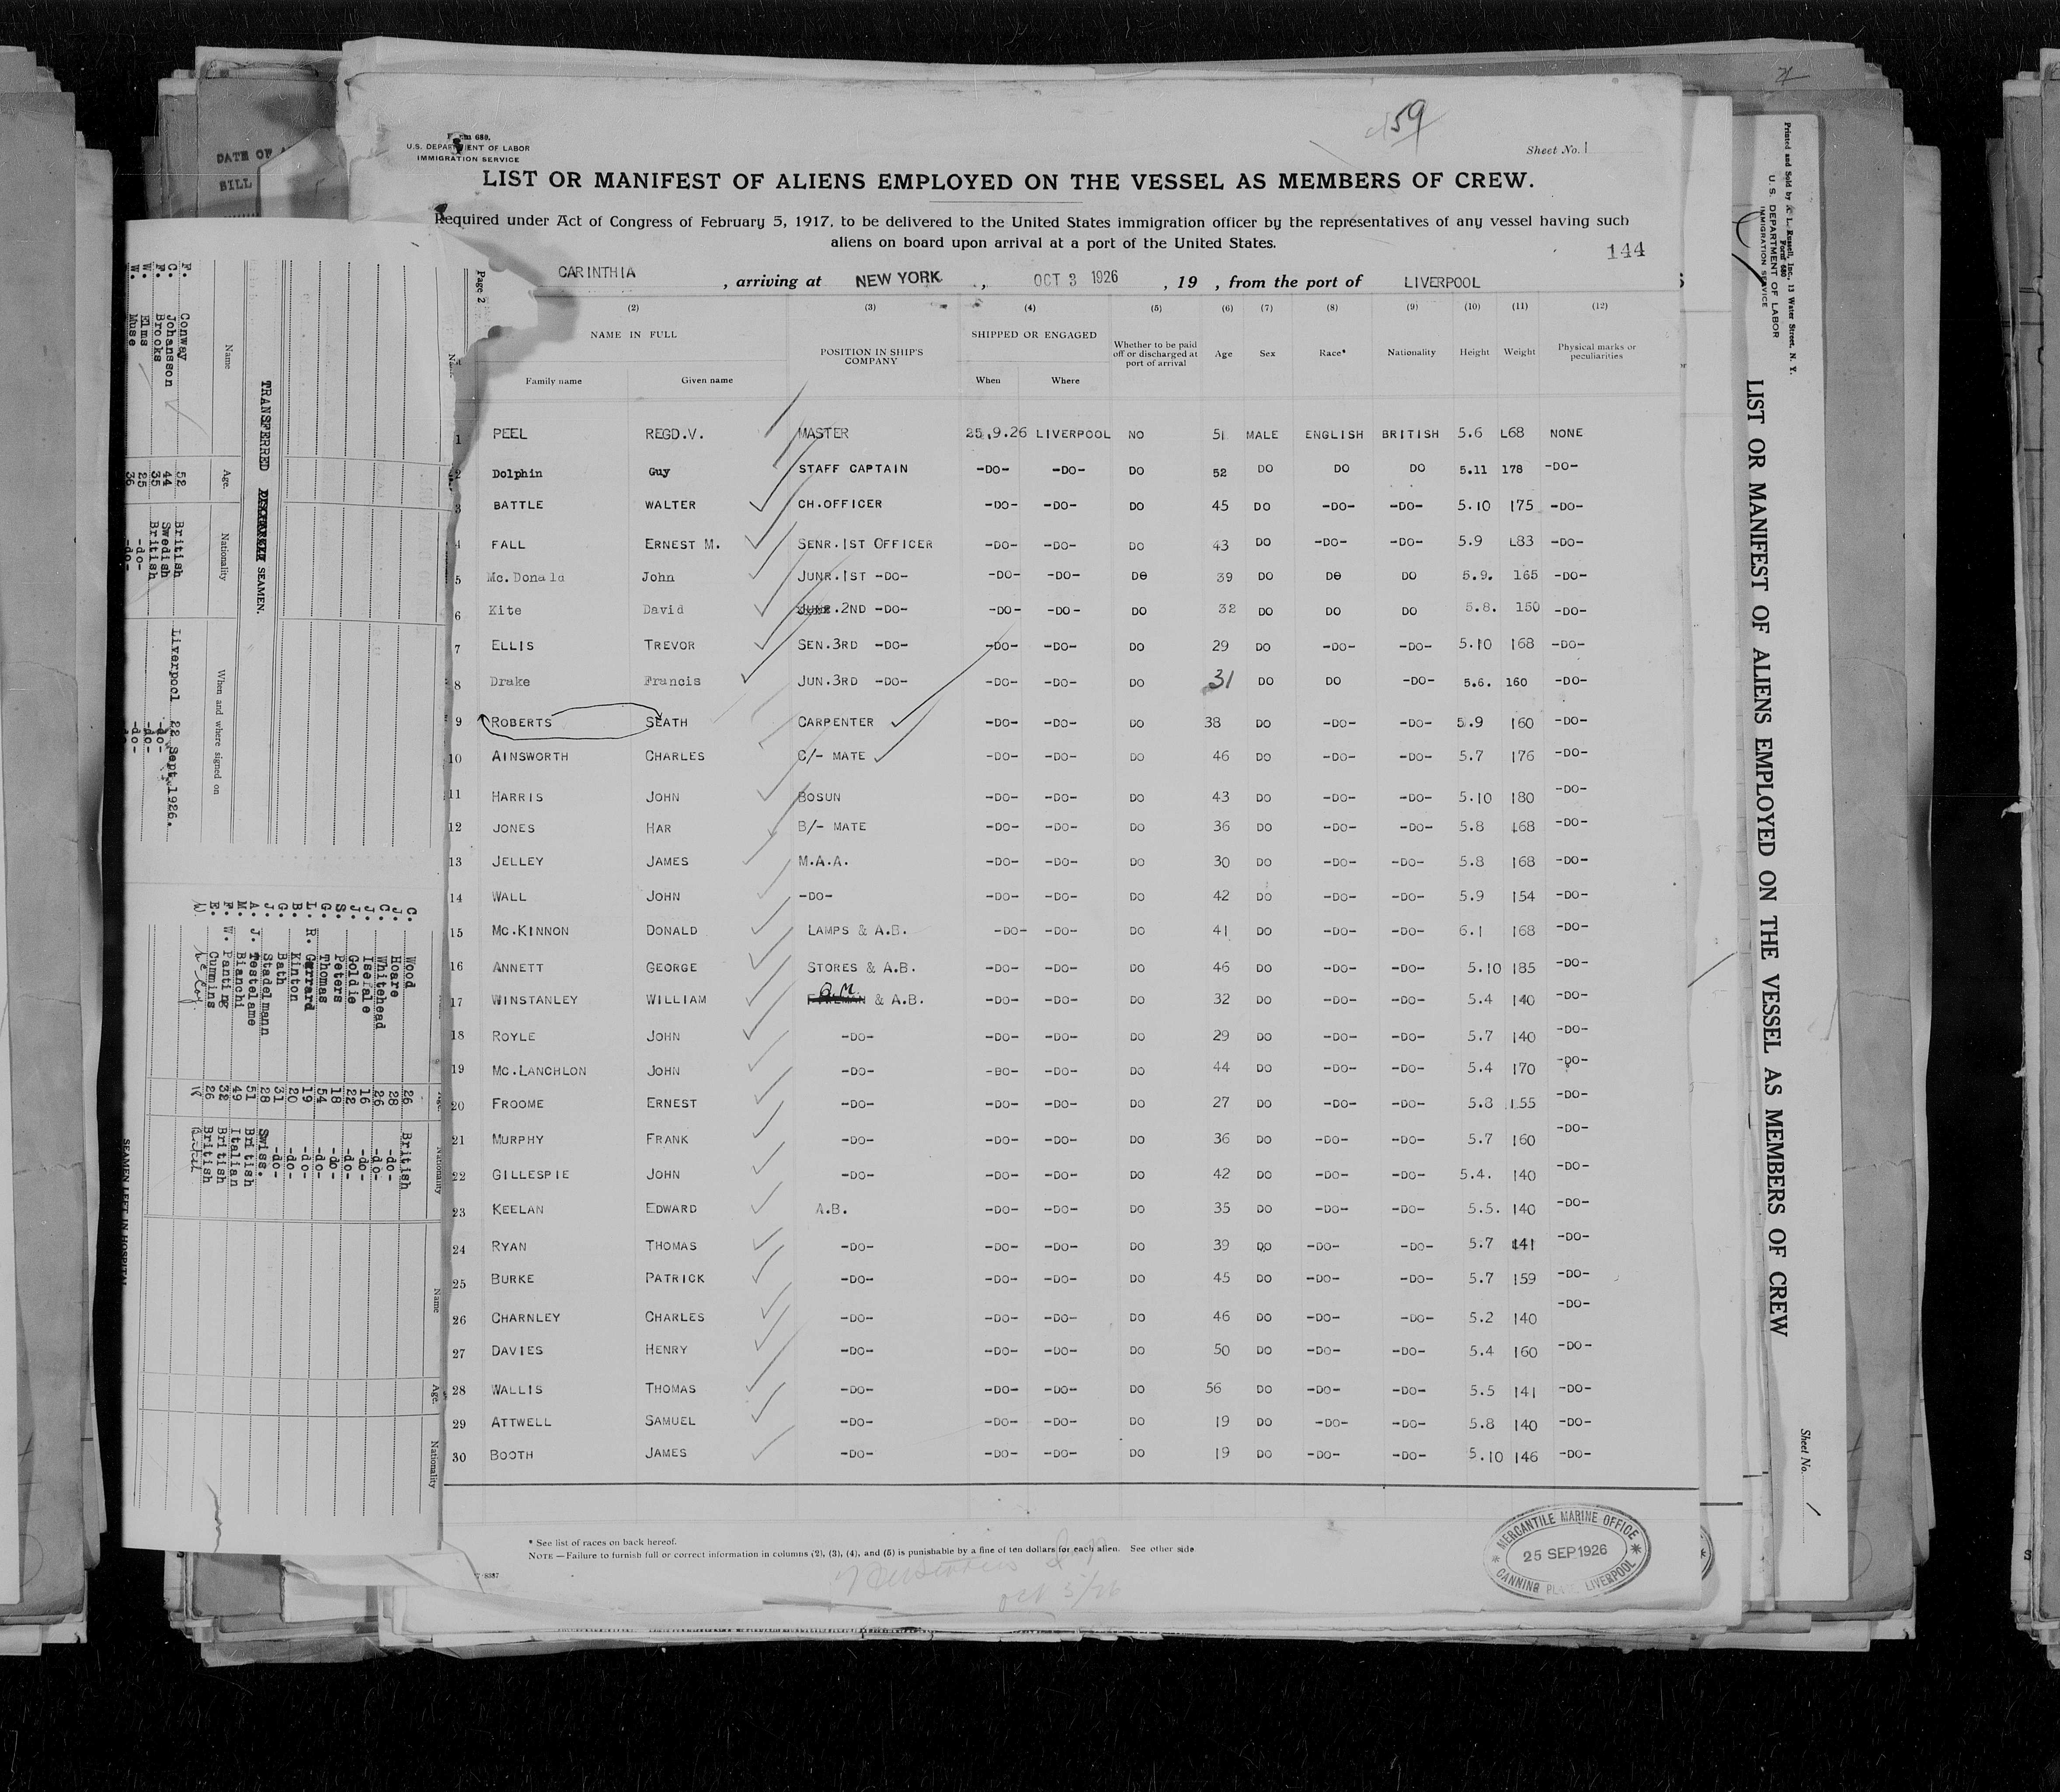 DATE OF
BILL
59
Form 689.
U.S. DEPARTMENT OF LABOR
IMMIGRATION SERVICE
Sheet No. 1
LIST OR MANIFEST OF ALIENS EMPLOYED ON THE VESSEL AS MEMBERS OF CREW.
Required under Act of Congress of February 5, 1917, to be delivered to the United States immigration officer by the representatives of any vessel having such
aliens on board upon arrival at a port of the United States.
144
Page 2
CARINTHIA , arriving at NEW YORK , OCT 3 1926 , 19 , from the port of LIVERPOOL
(2) (3) (4) (5) (6) (7) (8) (9) (10) (11) (12)
NAME IN FULL POSITION IN SHIP'S COMPANY SHIPPED OR ENGAGED Whether to be paid off or discharged at port of arrival Age Sex Race* Nationality Height Weight Physical marks or peculiarities
Family name Given name When Where
1 PEEL REGD.V. MASTER 25.9.26 LIVERPOOL NO 51 MALE ENGLISH BRITISH 5.6 L68 NONE
2 Dolphin Guy STAFF CAPTAIN -DO- -DO- DO 52 DO DO DO 5.11 178 -DO-
3 BATTLE WALTER CH.OFFICER -DO- -DO- DO 45 DO -DO- -DO- 5.10 175 -DO-
4 FALL ERNEST M. SENR.1ST OFFICER -DO- -DO- DO 43 DO -DO- -DO- 5.9 L83 -DO-
5 Mc.Donald John JUNR.1ST -DO- -DO- -DO- DO 39 DO DO DO 5.9. 165 -DO-
6 Kite David .2ND -DO- -DO- -DO- DO 32 DO DO DO 5.8. 150 -DO-
7 ELLIS TREVOR SEN.3RD -DO- -DO- -DO- DO 29 DO -DO- -DO- 5.10 168 -DO-
8 Drake Francis JUN.3RD -DO- -DO- -DO- DO 31 DO DO -DO- 5.6. 160 -DO-
9 ROBERTS SEATH CARPENTER -DO- -DO- DO 38 DO -DO- -DO- 5.9 160 -DO-
10 AINSWORTH CHARLES C/- MATE -DO- -DO- DO 46 DO -DO- -DO- 5.7 176 -DO-
11 HARRIS JOHN BOSUN -DO- -DO- DO 43 DO -DO- -DO- 5.10 180 -DO-
12 JONES HAR B/- MATE -DO- -DO- DO 36 DO -DO- -DO- 5.8 168 -DO-
13 JELLEY JAMES M.A.A. -DO- -DO- DO 30 DO -DO- -DO- 5.8 168 -DO-
14 WALL JOHN -DO- -DO- -DO- DO 42 DO -DO- -DO- 5.9 154 -DO-
15 MC.KINNON DONALD LAMPS & A.B. -DO- -DO- DO 41 DO -DO- -DO- 6.1 168 -DO-
16 ANNETT GEORGE STORES & A.B. -DO- -DO- DO 46 DO -DO- -DO- 5.10 185 -DO-
17 WINSTANLEY WILLIAM Q.M. & A.B. -DO- -DO- DO 32 DO -DO- -DO- 5.4 140 -DO-
18 ROYLE JOHN -DO- -DO- -DO- DO 29 DO -DO- -DO- 5.7 140 -DO-
19 MC.LANCHLON JOHN -DO- -BO- -DO- DO 44 DO -DO- -DO- 5.4 170 -DO-
20 FROOME ERNEST -DO- -DO- -DO- DO 27 DO -DO- -DO- 5.8 155 -DO-
21 MURPHY FRANK -DO- -DO- -DO- DO 36 DO -DO- -DO- 5.7 160 -DO-
22 GILLESPIE JOHN -DO- -DO- -DO- DO 42 DO -DO- -DO- 5.4. 140 -DO-
23 KEELAN EDWARD A.B. -DO- -DO- DO 35 DO -DO- -DO- 5.5. 140 -DO-
24 RYAN THOMAS -DO- -DO- -DO- DO 39 DO -DO- -DO- 5.7 141 -DO-
25 BURKE PATRICK -DO- -DO- -DO- DO 45 DO -DO- -DO- 5.7 159 -DO-
26 CHARNLEY CHARLES -DO- -DO- -DO- DO 46 DO -DO- -DO- 5.2 140 -DO-
27 DAVIES HENRY -DO- -DO- -DO- DO 50 DO -DO- -DO- 5.4 160 -DO-
28 WALLIS THOMAS -DO- -DO- -DO- DO 56 DO -DO- -DO- 5.5 141 -DO-
29 ATTWELL SAMUEL -DO- -DO- -DO- DO 19 DO -DO- -DO- 5.8 140 -DO-
30 BOOTH JAMES -DO- -DO- -DO- DO 19 DO -DO- -DO- 5.10 146 -DO-
* See list of races on back hereof.
NOTE —Failure to furnish full or correct information in columns (2), (3), (4), and (5) is punishable by a fine of ten dollars for each alien. See other side
Oct 3/26
MERCANTILE MARINE OFFICE
25 SEP 1926
CANNING PLACE LIVERPOOL
TRANSFERRED SEAMEN.
Name Age. Nationality When and where signed on
F. Conway 52 British Liverpool 22 Sept, 1926.
C. Johansson 44 Swedish -do-
F. Brooks 35 British -do-
W. Elms 25 -do- -do-
W. Muse 36 -do- -do-
Nationality Name Age. Nationality
C. Wood 26 British
J. Hoare 28 -do-
C. Whitehead 26 -do-
J. Isefale 16 -do-
J. Goldie 22 -do-
S. Peters 18 -do-
G. Thomas 54 -do-
L. R. Garrard 19 -do-
B. Kinton 20 -do-
G. Bath 31 -do-
J. Stadelmann 28 Swiss.
A. J. Testelame 51 British
M. Bianchi 49 Italian
F. W. Panting 32 British
E. Cummins 26 British
SEAMEN LEFT IN HOSPITAL
Printed and Sold by A. L. Russell, Inc., 13 Water Street, N. Y.
Form 680
U. S. DEPARTMENT OF LABOR
IMMIGRATION SERVICE
LIST OR MANIFEST OF ALIENS EMPLOYED ON THE VESSEL AS MEMBERS OF CREW
Sheet No. 1